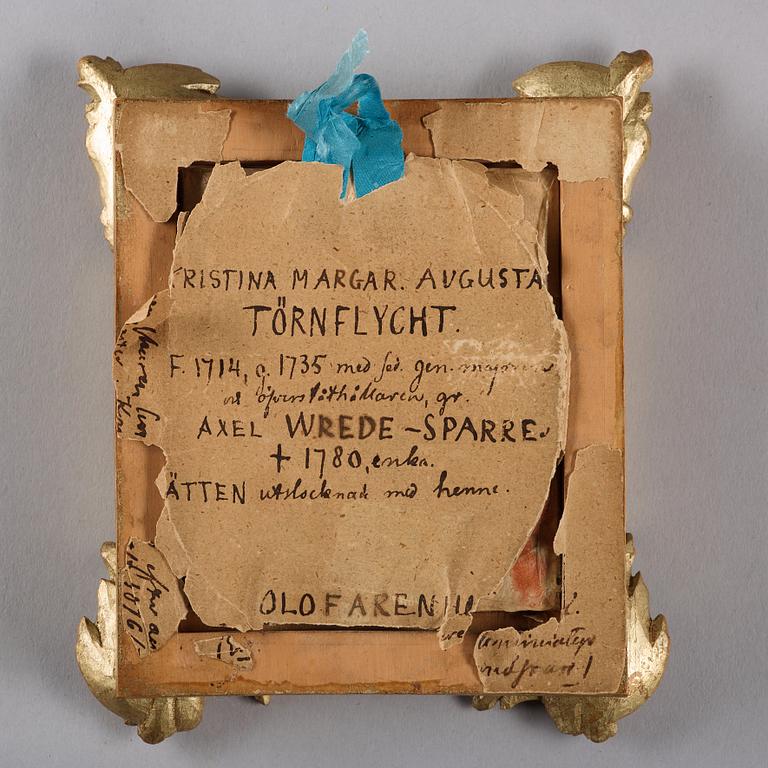 RISTINA MARGAR. AUGUSTA
TÖRNFLYCHT.
F. 1714, g. 1735 med sed. gen. majoren
öfverståthållaren, gr.
AXEL WREDE-SPARRE.
† 1780, enka.
ÄTTEN utslocknade med henne.
OLOF ARENIU